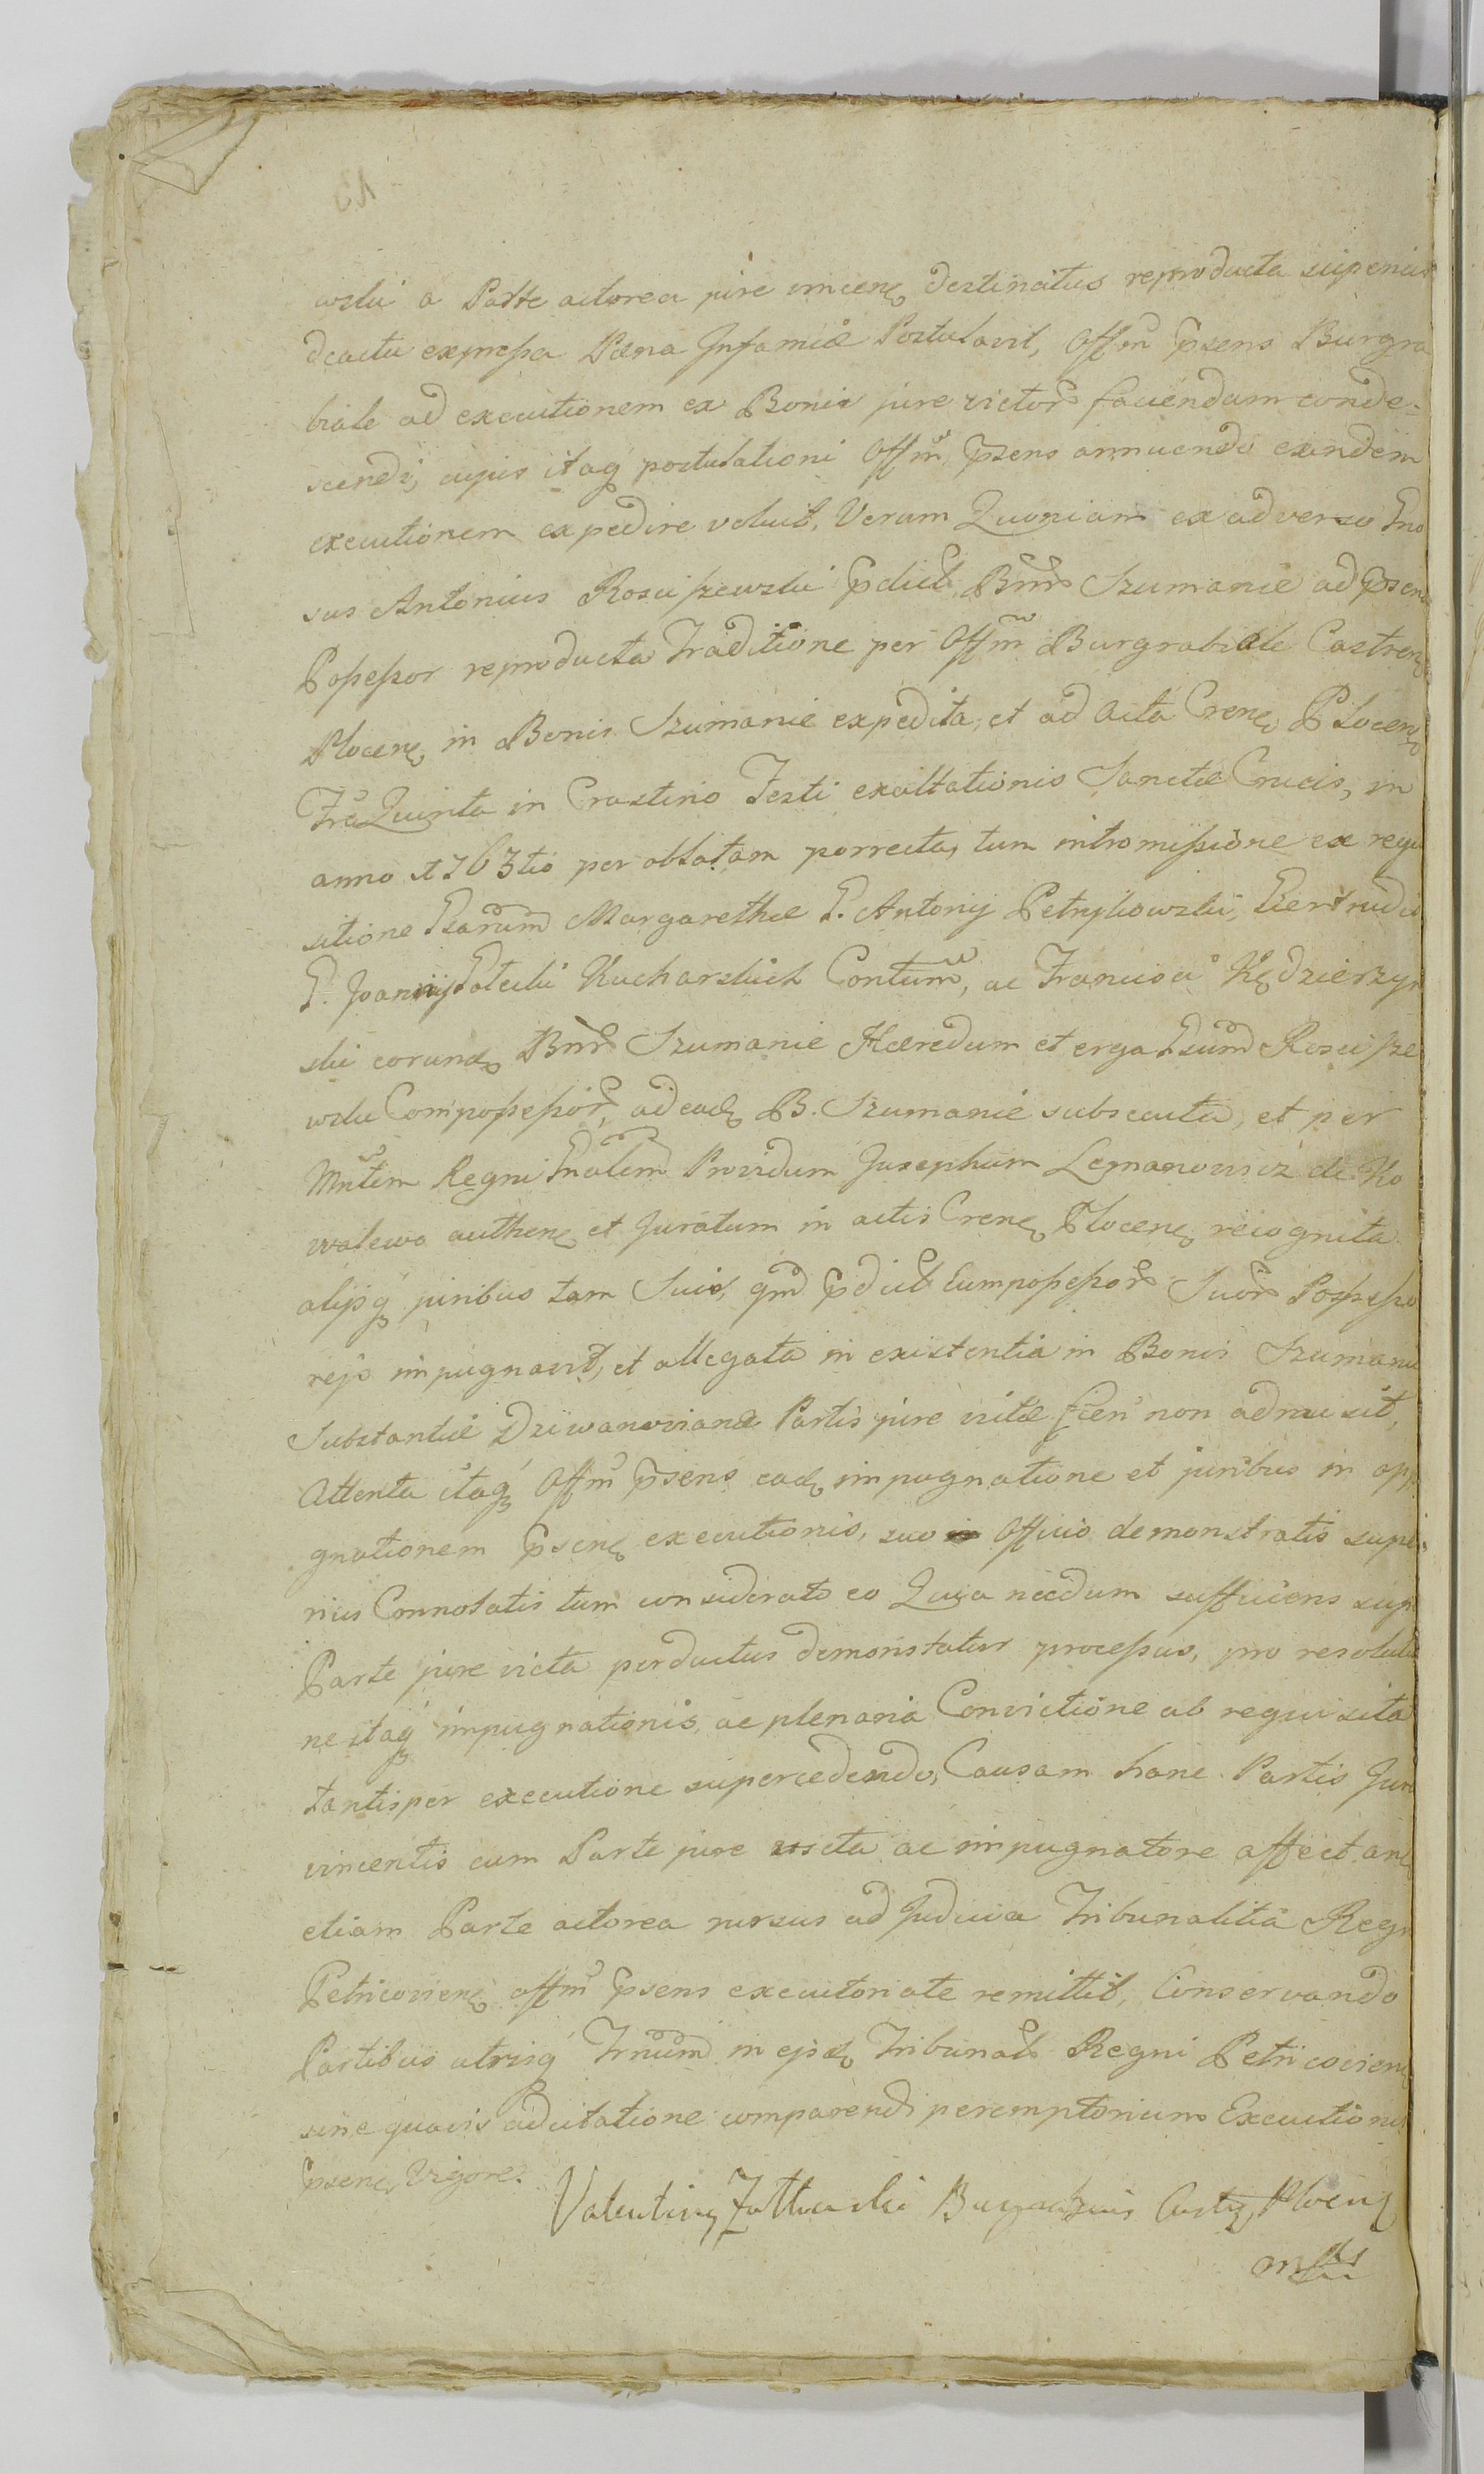 wski a Parte actorea jure vincenę destinatus reproducta superius
dcactu expressa Pæna Infamiæ Postulavit, Offm Psens Burgra
biale ad executionem ex Bonis jure victor favendam conde-
scendi, cujus itaq postulationi Offm Psens annuendo eandem
executionem expedire voluit, Verum Quoniam ex adverso Gno
sus Antonius Rosciszewski Pdict Bnr Szumanie ad Psens
Possessor reproducta Traditione per Offm Burgrabiale Castrenę
Plocenę in Bonis Szumanie expedita, et ad Acta Crenę Plocenę
Fria Quinta in Crastino Festi exaltationis Sanctæ Crucis, in
anno 1763tio per oblatam porrecta, tum intromissione ex requi
sitione Gsarum Margarethæ G. Antonij Petrykowski, Giertrudis
G. Joannis Patecki Kucharskich Contum, ac Francisci Kędzierzyn
ski eorundę Bnr Szumanie Hæredum et erga Gsum Roscisze
wski Compossessor, ad eadę B. Szumanie subsecuta, et per
Mntem Regni Gnalem Providum Josephum Lemanowicz de Ko
walewo authenę et Juratum in actis Crenę Plocenę recognita
alijsq juribus tam Suis, qm Pdict Compossessor Suor Possesso
rejs impugnavit, et allegata in existentia in Bonis Szumanie
Substantiæ Dziwanoviana Partis jure victæ fieri non admisit,
Attenta itaq Offm Psens eadę impugnatione et juribus in opp
gnationem Psenę executionis, suo Officio demonstratis supe
rius Connotatis tum considerato eo Quia necdum sufficiens sup
Parte jure victa perductus demonstatur processus, pro resolutio
ne itaq impugnationis, ac plenaria Convictione ab requisita
tantisper executione supercedendo, Causam hanc Partis Jure
vincentis cum Parte jure victa ac impugnatore affectanę
etiam Parte actorea rursus ad Judicia Tribunalitia Regni
Petricovienę offm Psens executoriate remittit, Conservando
Partibus utrisq Trnum in ejsdę Tribunal Regni Petricovienę
sine quavis adcitatione comparendi peremptorium Executionis
Psenę Vigore.
Valentinę Burgrabius Castrę Plocenę